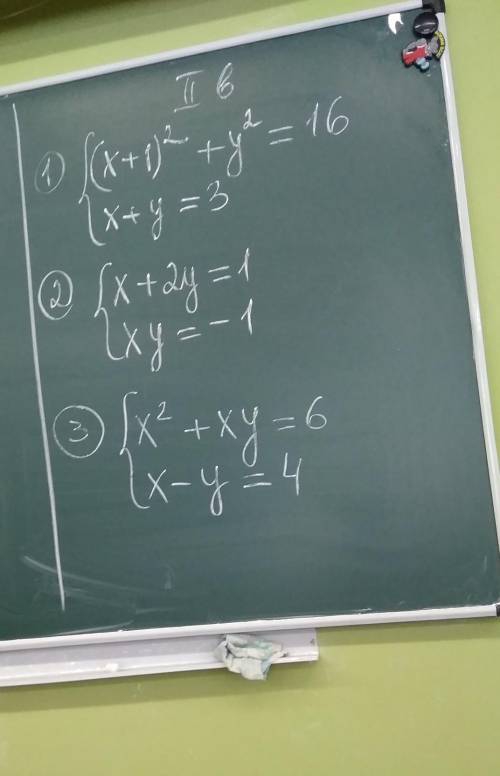 II в
1) { (x+1)² + y² = 16
x + y = 3
2) { x + 2y = 1
xy = -1
3) { x² + xy = 6
x - y = 4